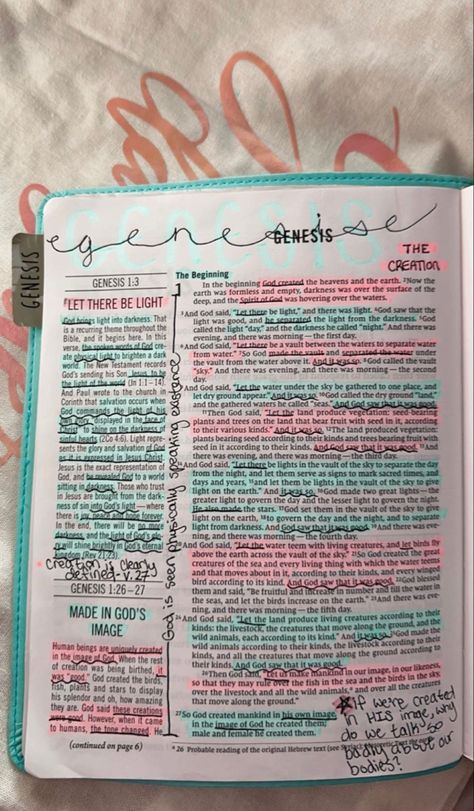 GENESIS
genesis
GENESIS
THE
CREATION
GENESIS
GENESIS 1:3
LET THERE BE LIGHT
God brings light into darkness. That
is a recurring theme throughout the
Bible, and it begins here. In this
verse, the spoken words of God cre-
ate physical light to brighten a dark
world. The New Testament records
God's sending his Son Jesus to be
the light of the world (In 1:1–14).
And Paul wrote to the church in
Corinth that salvation occurs when
God commands the light of his
own glory, "displayed in the face of
Christ" to shine on the darkness of
sinful hearts (2Co 4:6). Light repre-
sents the glory and salvation of God
as it is expressed in Jesus Christ.
Jesus is the exact representation of
God, and he revealed God to a world
sitting in darkness. Those who trust
in Jesus are brought from the dark-
ness of sin into God's light — where
there is joy, peace and hope forever.
In the end, there will be no more
darkness, and the light of God's glo-
ry will shine brightly in God's eternal
kingdom (Rev 21:23).
creation is clearly
defined - v. 27
GENESIS 1:26–27
MADE IN GOD'S
IMAGE
Human beings are uniquely created
in the image of God. When the rest
of creation was being birthed, it
was "good." God created the birds,
fish, plants and stars to display
his splendor and oh, how amazing
they are. God said these creations
were good. However, when it came
to humans, the tone changed. He
(continued on page 6)
God is seen physically speaking existence
The Beginning
1 In the beginning God created the heavens and the earth. 2Now the
earth was formless and empty, darkness was over the surface of the
deep, and the Spirit of God was hovering over the waters.
3And God said, "Let there be light," and there was light. 4God saw that the
light was good, and he separated the light from the darkness. 5God
called the light "day," and the darkness he called "night." And there was
evening, and there was morning — the first day.
6And God said, "Let there be a vault between the waters to separate water
from water." 7So God made the vault and separated the water under
the vault from the water above it. And it was so. 8God called the vault
"sky." And there was evening, and there was morning — the second
day.
9And God said, "Let the water under the sky be gathered to one place, and
let dry ground appear." And it was so. 10God called the dry ground "land,"
and the gathered waters he called "seas." And God saw that it was good.
11Then God said, "Let the land produce vegetation: seed-bearing
plants and trees on the land that bear fruit with seed in it, according
to their various kinds." And it was so. 12The land produced vegetation:
plants bearing seed according to their kinds and trees bearing fruit with
seed in it according to their kinds. And God saw that it was good. 13And
there was evening, and there was morning — the third day.
14And God said, "Let there be lights in the vault of the sky to separate the day
from the night, and let them serve as signs to mark sacred times, and
days and years, 15and let them be lights in the vault of the sky to give
light on the earth." And it was so. 16God made two great lights — the
greater light to govern the day and the lesser light to govern the night.
He also made the stars. 17God set them in the vault of the sky to give
light on the earth, 18to govern the day and the night, and to separate
light from darkness. And God saw that it was good. 19And there was eve-
ning, and there was morning — the fourth day.
20And God said, "Let the water teem with living creatures, and let birds fly
above the earth across the vault of the sky." 21So God created the great
creatures of the sea and every living thing with which the water teems
and that moves about in it, according to their kinds, and every winged
bird according to its kind. And God saw that it was good. 22God blessed
them and said, "Be fruitful and increase in number and fill the water in
the seas, and let the birds increase on the earth." 23And there was eve-
ning, and there was morning — the fifth day.
24And God said, "Let the land produce living creatures according to their
kinds: the livestock, the creatures that move along the ground, and the
wild animals, each according to its kind." And it was so. 25God made the
wild animals according to their kinds, the livestock according to their
kinds, and all the creatures that move along the ground according to
their kinds. And God saw that it was good.
26Then God said, "Let us make mankind in our image, in our likeness,
so that they may rule over the fish in the sea and the birds in the sky,
over the livestock and all the wild animals,a and over all the creatures
that move along the ground."
27So God created mankind in his own image,
in the image of God he created them;
male and female he created them.
a 26 Probable reading of the original Hebrew text (see
if we're created
in HIS image, why
do we talk so
badly about our
bodies?